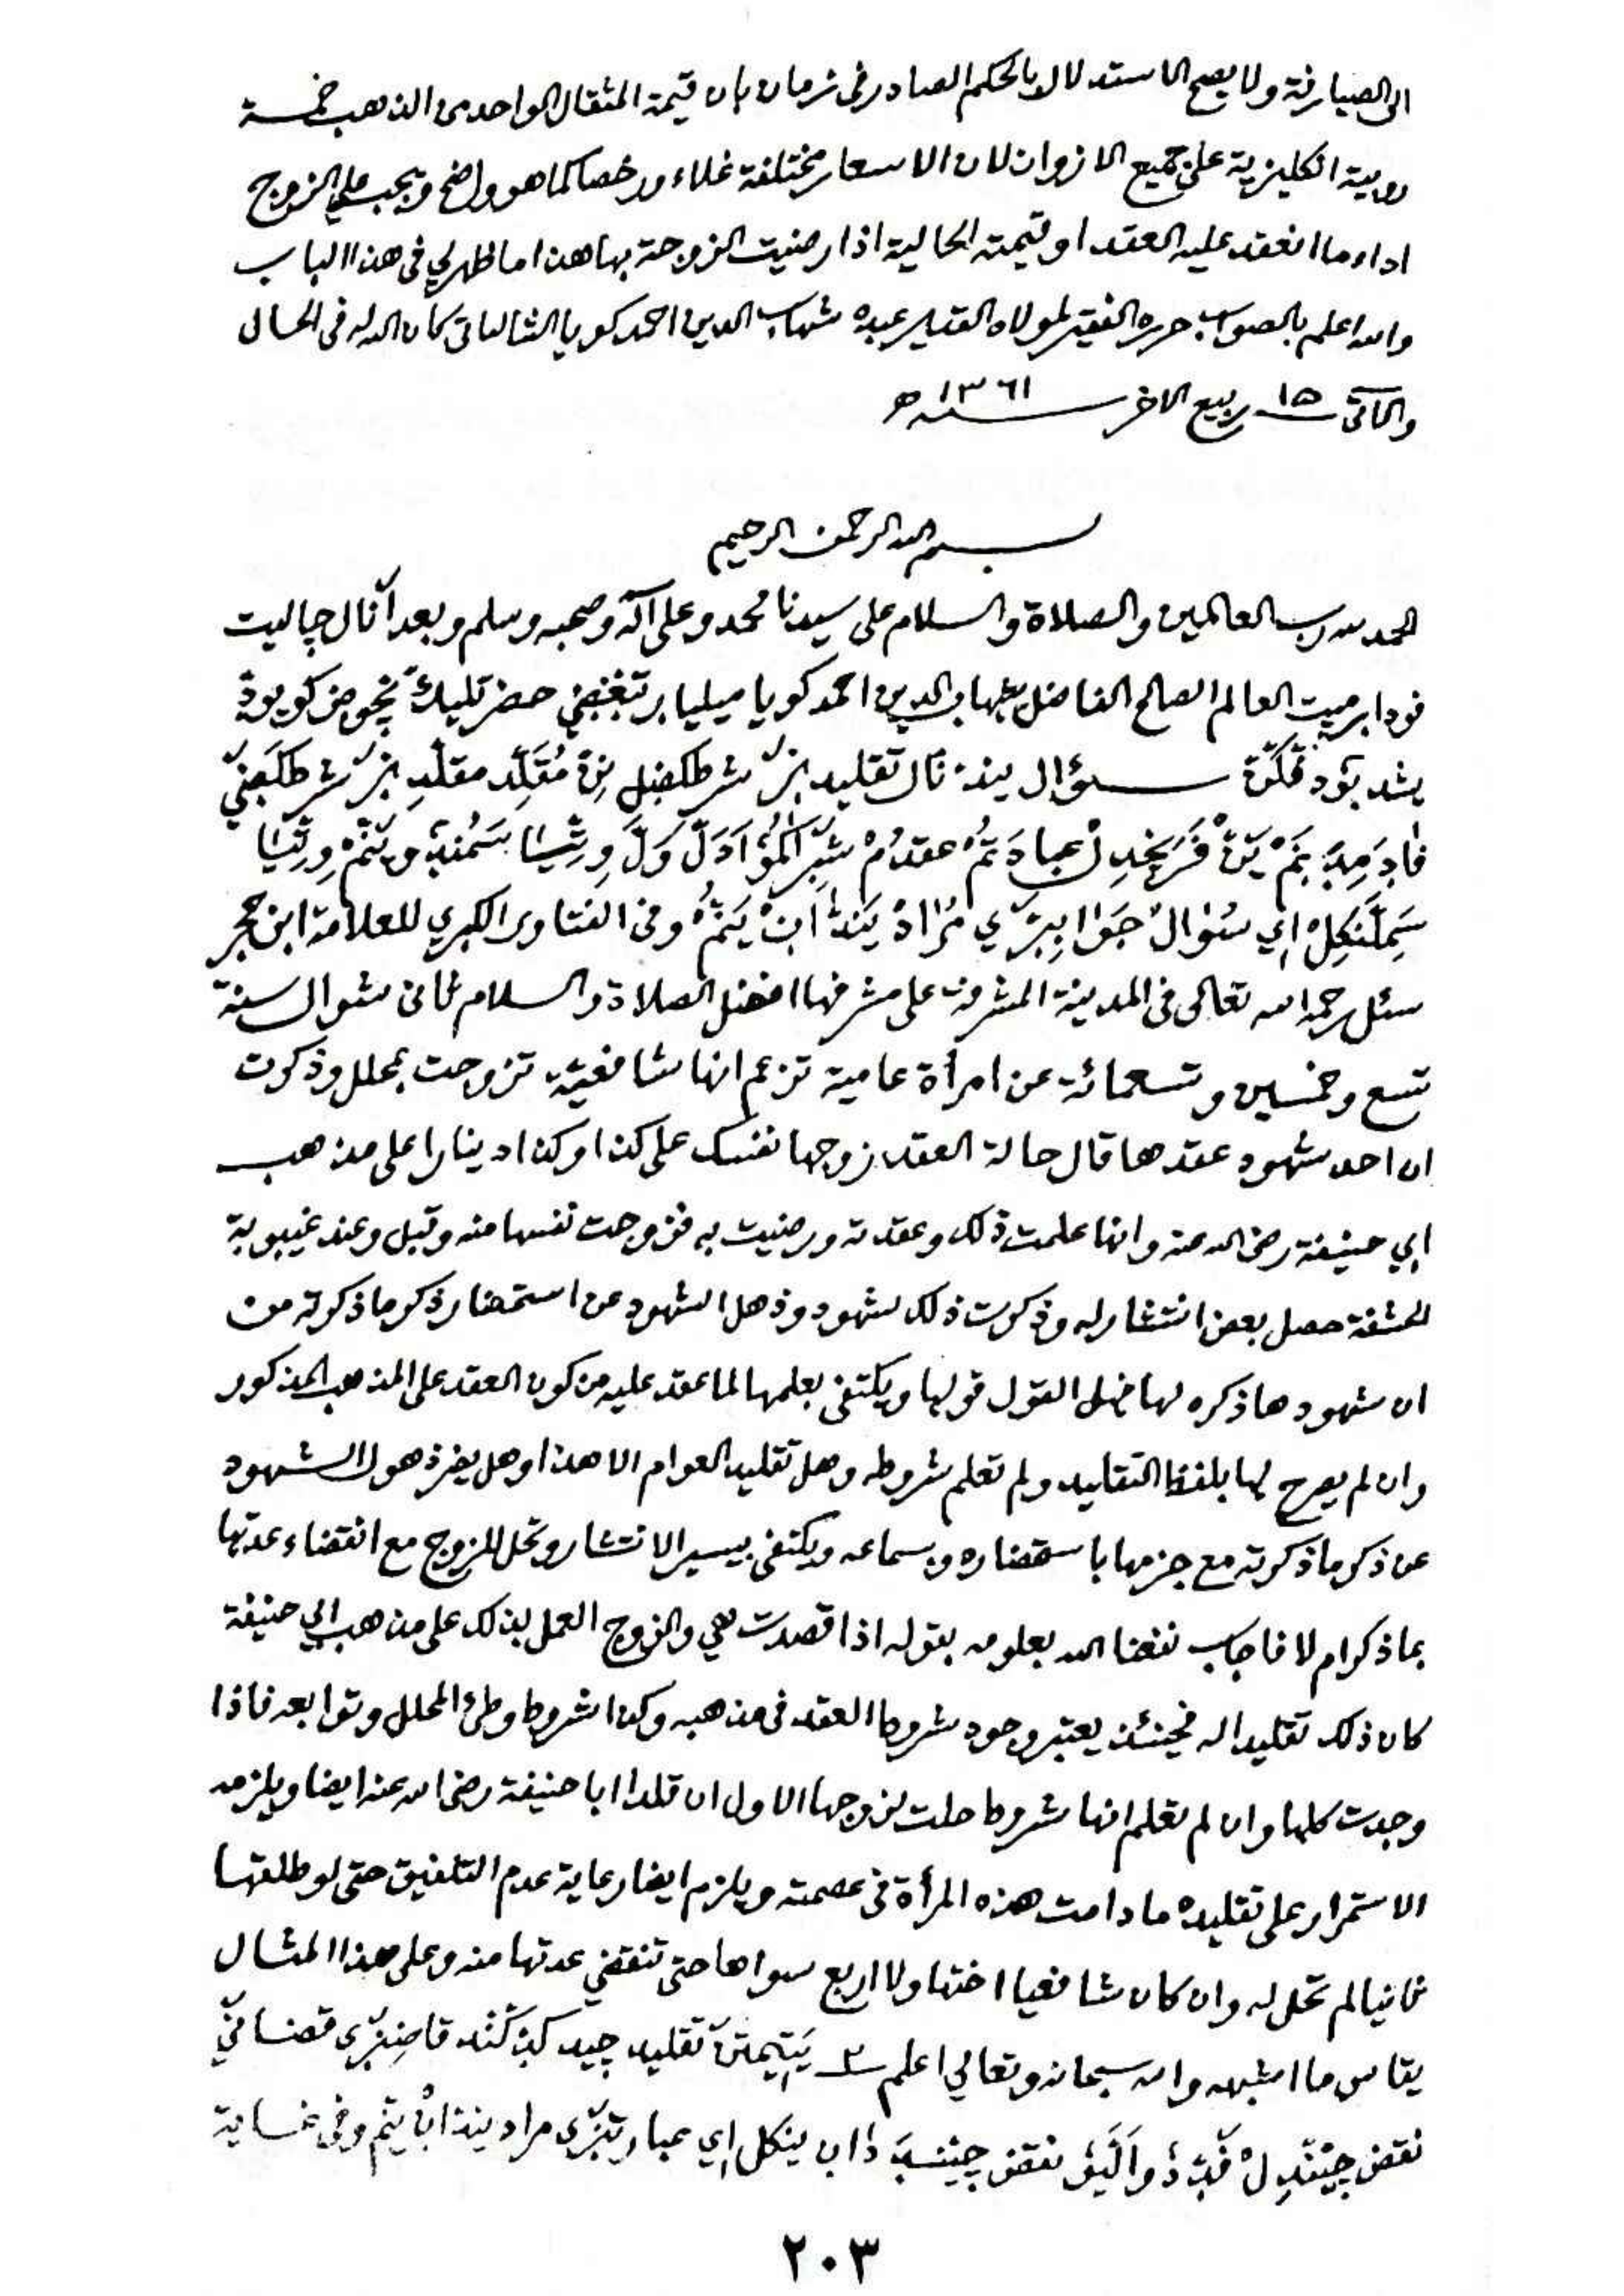 الى الصيارفة ولا يصح الاستدلال بالحكم الصادر فى زمان بان قيمة المثقال الواحد من الذهب خمسة
روبية انكليزية على جميع الازوان لان الاسعار مختلفة غلاء ورخصا كما هو واضح ويجب على الزوج
اداء ما انعقد عليه العقد او قيمته الحالية اذا رضيت الزوجة بها هذا ما ظهر لي فى هذا الباب
والله اعلم بالصواب حرره الفقير لمولاه القدير عبده شهاب الدين احمد كويا الشالياتى كان الله له فى الحال
والآتى ١٥ ربيع الاخر سنة ١٣٦١ ه
بسم الله الرحمن الرحيم
الحمد لله رب العالمين والصلاة والسلام على سيدنا محمد وعلى آله وصحبه وسلم وبعد آنال چاليت
العالم الصالح الفاضل شهاب الدين احمد كويا حضر
سؤال تقليد شرط مُقَلِّد مقلَّد شرط
عقد
اي سُؤال جَوَاب مُرَادْ وفى الفتاوى الكبري للعلامة ابن حجر
سئل رحمه الله تعالى فى المدينة المشرفة على مشرفها افضل الصلاة والسلام ثمانى شوال سنة
تسع وخمسين وتسعمائة عن امرأة عامية تزعم انها شافعية تزوجت بمحلل وذكرت
ان احد شهود عقدها قال حالة العقد زوجها نفسك على كذا وكذا دينارا على مذهب
ابي حنيفة رضى الله عنه وانها علمت ذلك وعقدته ورضيت به فزوجت نفسها منه وقبل وعند غيبوبة
الحشفة حصل بعض انتشار له وذكرت ذلك لشهود وذهل الشهود عن استحضار ذكر ما ذكرته من
ان شهودها ذكره لها فهل القول قولها ويكتفى بعلمها لما عقد عليه من كون العقد على المذهب المذكور
وان لم يصرح لها بلفظ التقليد ولم تعلم شروطه وهل تقليد العوام الا هذا وهل يضر ذهول الشهود
عن ذكر ما ذكرته مع جزمها باستحضاره وبسماعه ويكتفى بيسير الانتشار وتحل للزوج مع انقضاء عدتها
بما ذكر ام لا فاجاب نفعنا الله بعلومه بقوله اذا قصدت هي والزوج العمل بذلك على مذهب ابي حنيفة
كان ذلك تقليدا له فحينئذ يعتبر وجود شروط العقد فى مذهبه وكذا شروط وطئ المحلل وتوابعه فاذا
وجدت كلها وان لم تعلم انها شروط حلت لزوجها الاول ان قلدا ابا حنيفة رضى الله عنه ايضا ويلزمه
الاستمرار على تقليده ما دامت هذه المرأة فى عصمته ويلزم ايضا رعاية عدم التلفيق حتى لو طلقها
ثمانيا لم تحل له وان كان شافعيا اختها ولا اربع سواها حتى تنقضي عدتها منه وعلى هذا المثال
يقاس ما اشبهه والله سبحانه وتعالي اعلم ٢ تقليد چيد
نقض نقض اي مراد وفى غاية
٢٠٣